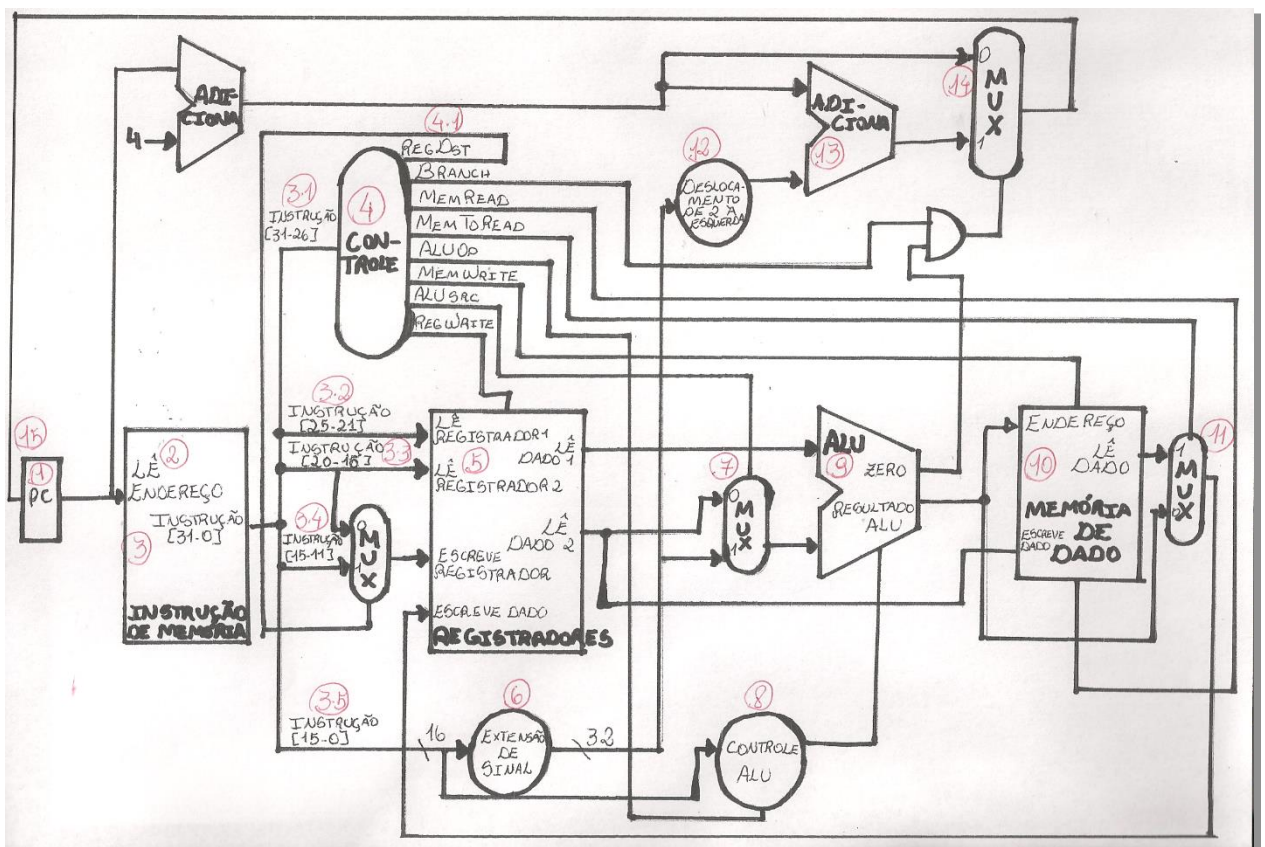 ADI-
CIONA
4
4.1
REGDST
BRANCH
MEMREAD
MEMTOREAD
ALUOP
MEMWRITE
ALUSRC
REGWRITE
3.1
INSTRUÇÃO
[31-26]
4
CON-
TROLE
12
DESLOCA-
MENTO
DE 2 A
ESQUERDA
ADI-
CIONA
13
14
0
MUX
1
15
1
PC
2
LÊ
ENDEREÇO
INSTRUÇÃO
[31-0]
3
INSTRUÇÃO
DE MEMÓRIA
3.2
INSTRUÇÃO
[25-21]
INSTRUÇÃO
[20-16]
3.3
3.4
INSTRUÇÃO
[15-11]
0
MUX
1
LÊ
REGISTRADOR 1
LÊ
DADO 1
5
LÊ
REGISTRADOR 2
LÊ
DADO 2
ESCREVE
REGISTRADOR
ESCREVE DADO
REGISTRADORES
7
0
MUX
1
ALU
9
ZERO
RESULTADO
ALU
ENDEREÇO
LÊ
DADO
10
MEMÓRIA
DE
DADO
ESCREVE
DADO
11
1
MUX
0
3.5
INSTRUÇÃO
[15-0]
16
6
EXTENSÃO
DE
SINAL
32
8
CONTROLE
ALU